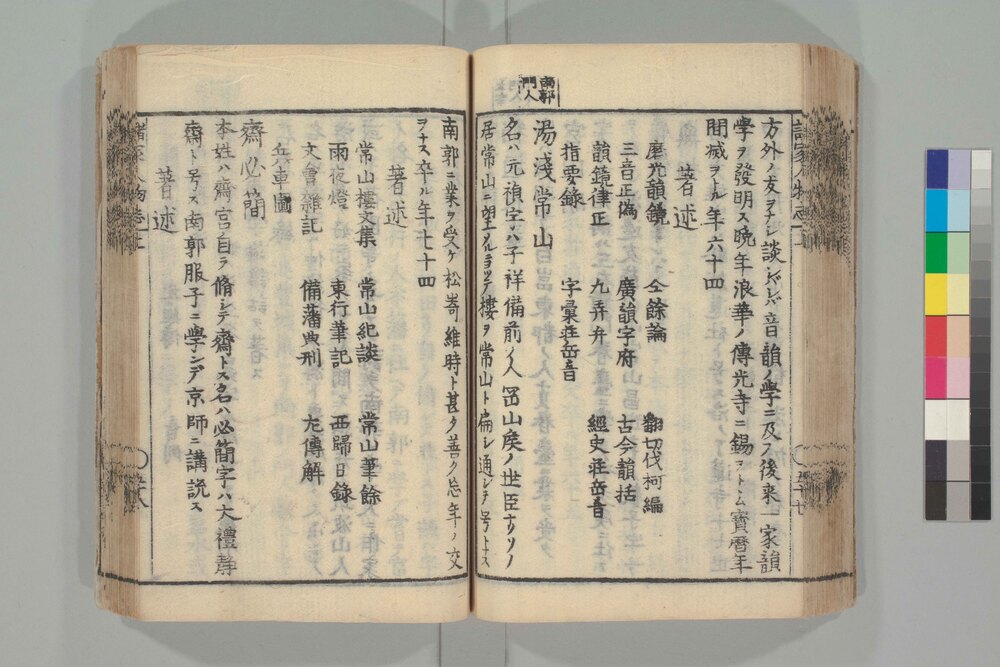 南郭
門人
方外ノ友ヲナシ談シバ〳〵音韻ノ學ニ及フ後来一家韻
學ヲ發明ス晩年浪華ノ傳光寺ニ錫ヲトム寶暦年
間滅ヲトル年六十四
著述
磨光韻鏡 仝餘論 翻切伐柯編
三音正偽 廣韻字府 古今韻括
韻鏡律正 九弄弁 經史荘岳音
指要錄 字彙荘岳音
湯淺常山
名ハ元禎字ハ子祥備前ノ人岡山矦ノ世臣ナリソノ
居常山ニ望ムヲ以テ樓ヲ常山ト扁シ通シテ号トス
南郭ニ業ヲ受ケ松﨑維時ト甚タ善ク忘年ノ交
ヲナス卒ル年七十四
著述
常山樓文集 常山紀談 常山筆餘
雨夜燈 東行筆記 西歸日錄
文會雜記 備藩典刑 左傳解
兵車圖
齋必簡
本姓ハ齋宮自ラ脩シテ齋トス名ハ必簡字ハ大禮靜
齋ト号ス南郭服子ニ學ンデ京師ニ講説ス
著述